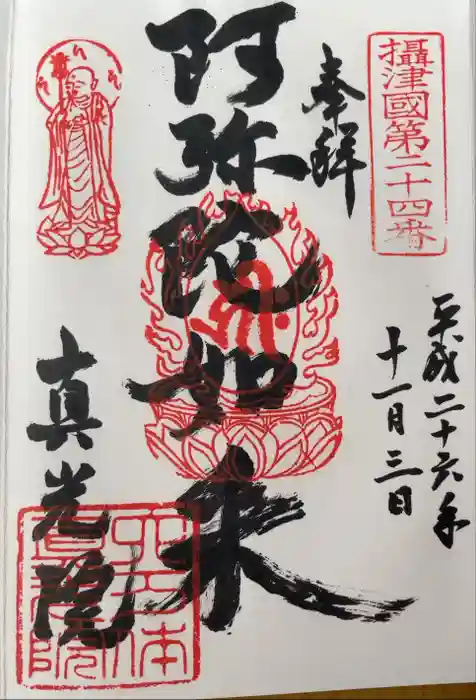 攝津國第二十四番
平成二十六年
十一月三日
奉拝
阿弥陀如来
真光院